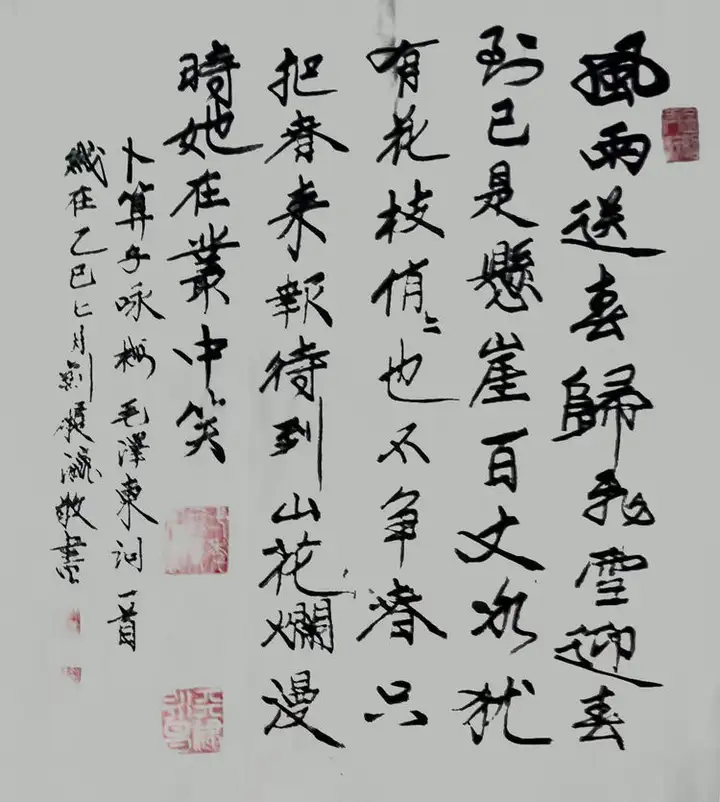 風雨送春歸飛雪迎春
到已是懸崖百丈冰猶
有花枝俏〻也不争春只
把春来報待到山花爛漫
時她在叢中笑
卜算子咏梅毛澤東词一首
歲在乙巳七月劉敬書